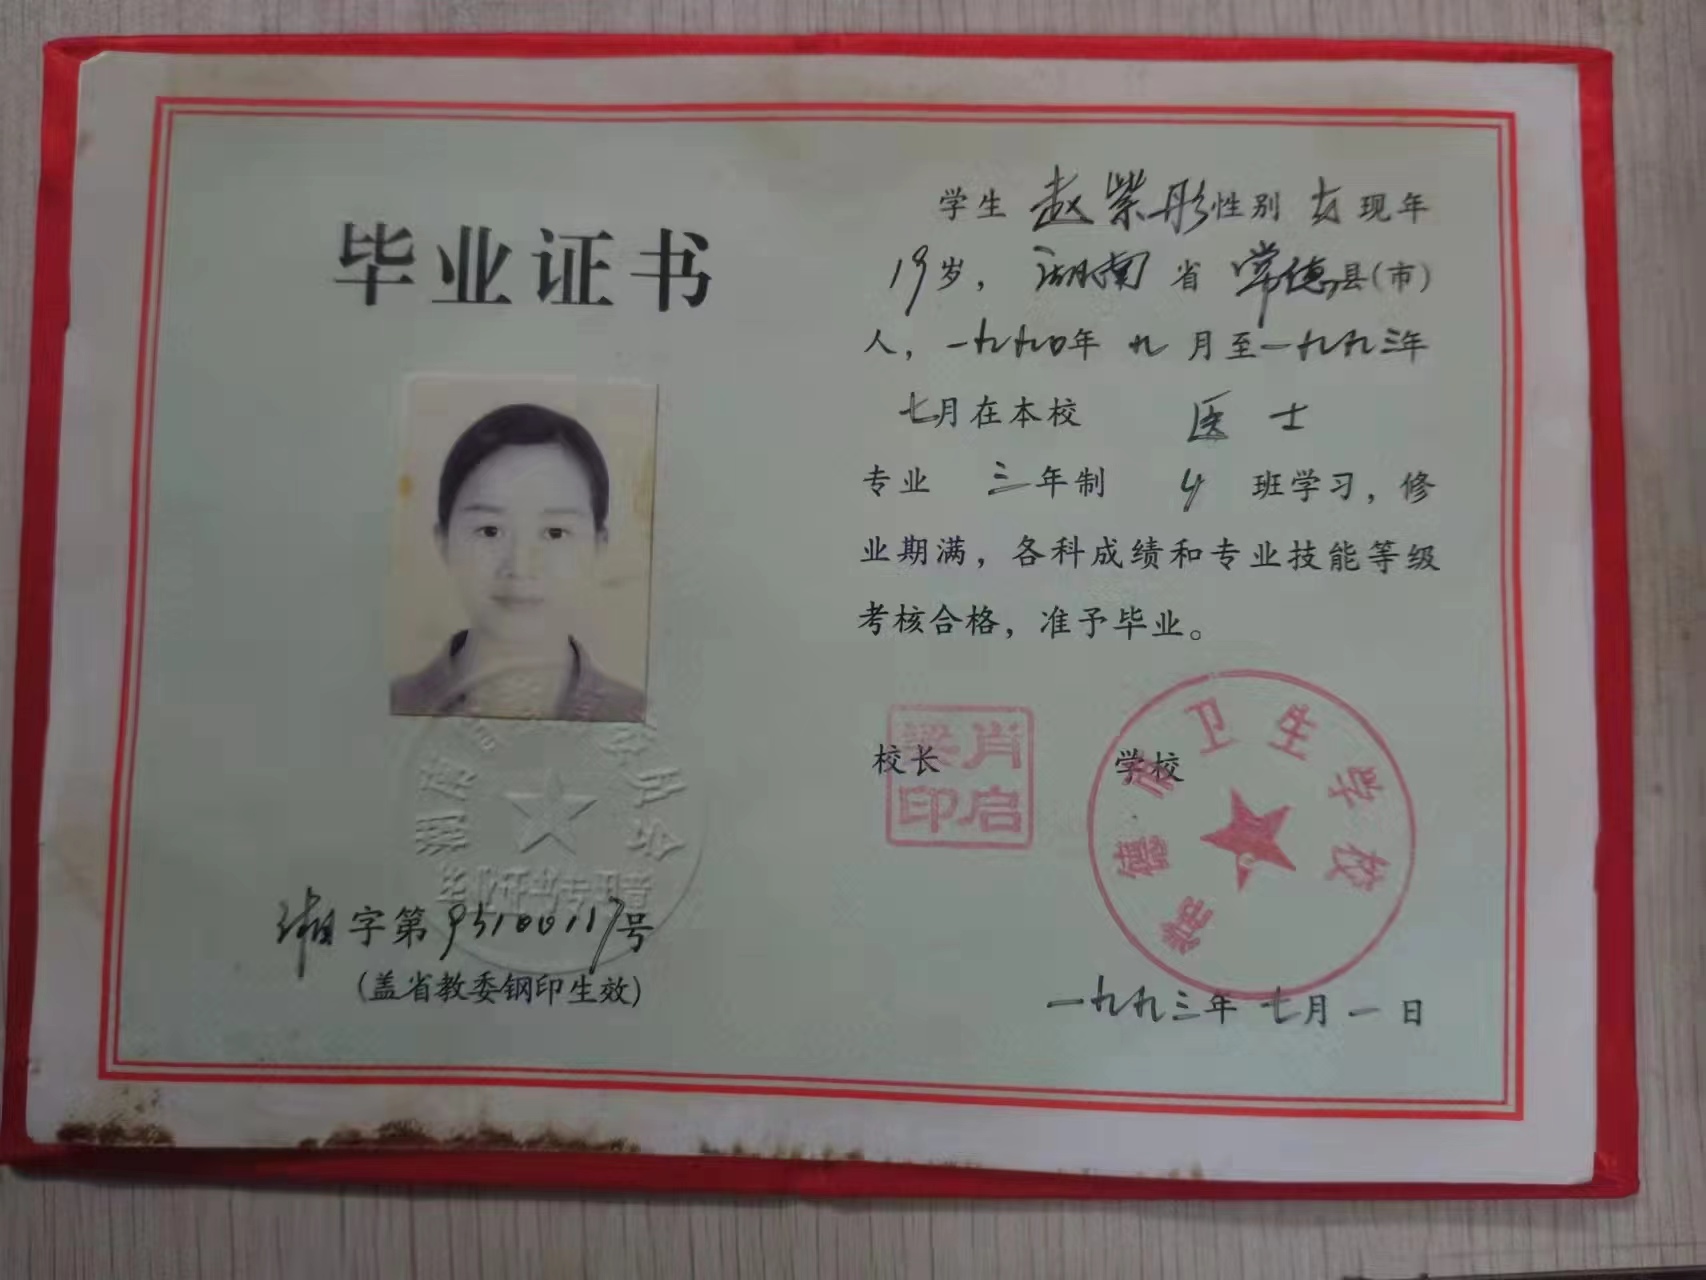 毕业证书
湘字第93100117号
(盖省教委钢印生效)
毕业证书专用章
学生 赵紫彤 性别 女 现年
19岁，湖南省常德县(市)
人，一九九〇年九月至一九九三年
七月在本校 医士
专业 三年制 班学习，修
业期满，各科成绩和专业技能等级
考核合格，准予毕业。
校长 学校
肖启梁印
常德市卫生学校
一九九三年七月一日